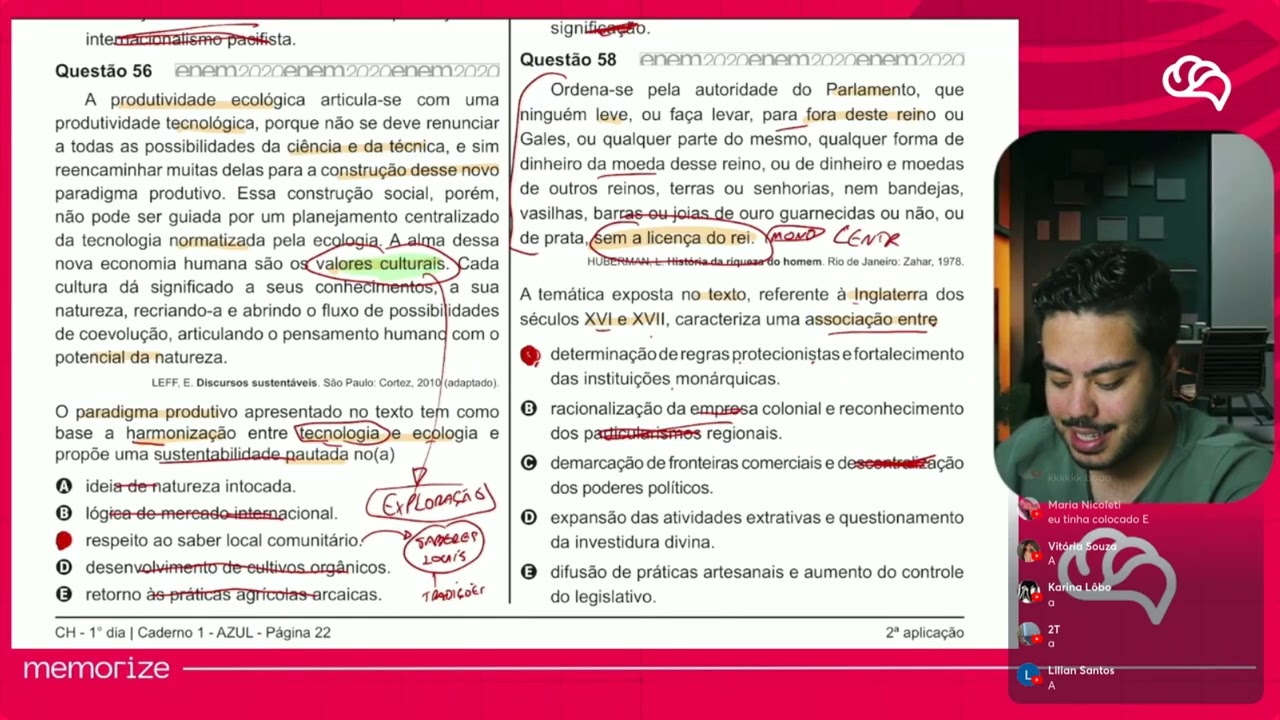 internacionalismo pacifista.
Questão 56 enem2020enem2020enem2020
A produtividade ecológica articula-se com uma
produtividade tecnológica, porque não se deve renunciar
a todas as possibilidades da ciência e da técnica, e sim
reencaminhar muitas delas para a construção desse novo
paradigma produtivo. Essa construção social, porém,
não pode ser guiada por um planejamento centralizado
da tecnologia normatizada pela ecologia. A alma dessa
nova economia humana são os valores culturais. Cada
cultura dá significado a seus conhecimentos, a sua
natureza, recriando-a e abrindo o fluxo de possibilidades
de coevolução, articulando o pensamento humano com o
potencial da natureza.
LEFF, E. Discursos sustentáveis. São Paulo: Cortez, 2010 (adaptado).
O paradigma produtivo apresentado no texto tem como
base a harmonização entre tecnologia e ecologia e
propõe uma sustentabilidade pautada no(a)
A ideia de natureza intocada.
B lógica de mercado internacional.
respeito ao saber local comunitário.
D desenvolvimento de cultivos orgânicos.
E retorno às práticas agrícolas arcaicas.
EXPLORAÇÃO
SABERES
LOCAIS
TRADIÇÕES
CH - 1° dia | Caderno 1 - AZUL - Página 22
significação.
Questão 58 enem2020enem2020enem2020
Ordena-se pela autoridade do Parlamento, que
ninguém leve, ou faça levar, para fora deste reino ou
Gales, ou qualquer parte do mesmo, qualquer forma de
dinheiro da moeda desse reino, ou de dinheiro e moedas
de outros reinos, terras ou senhorias, nem bandejas,
vasilhas, barras ou joias de ouro guarnecidas ou não, ou
de prata, sem a licença do rei. MONO CENTR
HUBERMAN, L. História da riqueza do homem. Rio de Janeiro: Zahar, 1978.
A temática exposta no texto, referente à Inglaterra dos
séculos XVI e XVII, caracteriza uma associação entre
determinação de regras protecionistas e fortalecimento
das instituições monárquicas.
B racionalização da empresa colonial e reconhecimento
dos particularismos regionais.
C demarcação de fronteiras comerciais e descentralização
dos poderes políticos.
D expansão das atividades extrativas e questionamento
da investidura divina.
E difusão de práticas artesanais e aumento do controle
do legislativo.
2ª aplicação
memorize
Maria Nicoleti
eu tinha colocado E
Vitória Souza
A
Karina Lôbo
a
2T
a
L Lilian Santos
A